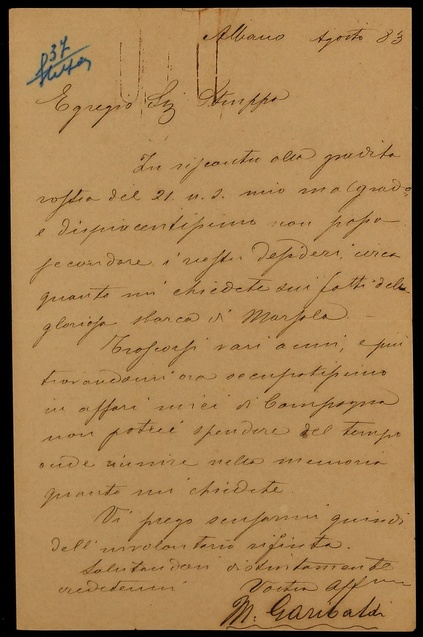 Albano Agosto 83
37
Egregio Sig Struppa
In riscontro alla gradita
vostra del 21. u. s. mio malgrado
e dispiacentissimo non posso
secondare i vostri desideri, circa
quanto mi chiedete sui fatti della
gloriosa sbarco di Marsala.
Trascorsi vari anni, e più
trovandomi ora occupatissimo
in affari miei di Campagna
non potrei spendere del tempo
onde riunire nella memoria
quanto mi chiedete.
Vi prego scusarmi quindi
dell'involontario rifiuto.
Salutandovi distintamente
credetemi Vostro Aff
M. Garibaldi